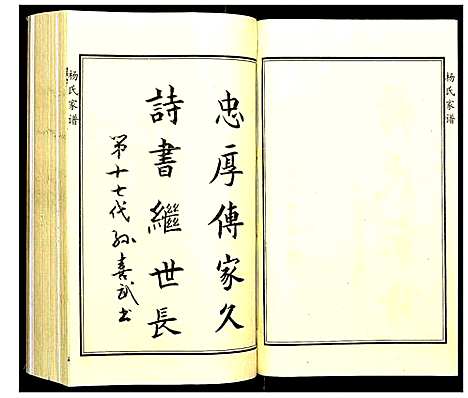 杨氏家谱
忠厚傳家久
詩書繼世長
第十七代孙喜武书
杨氏家谱